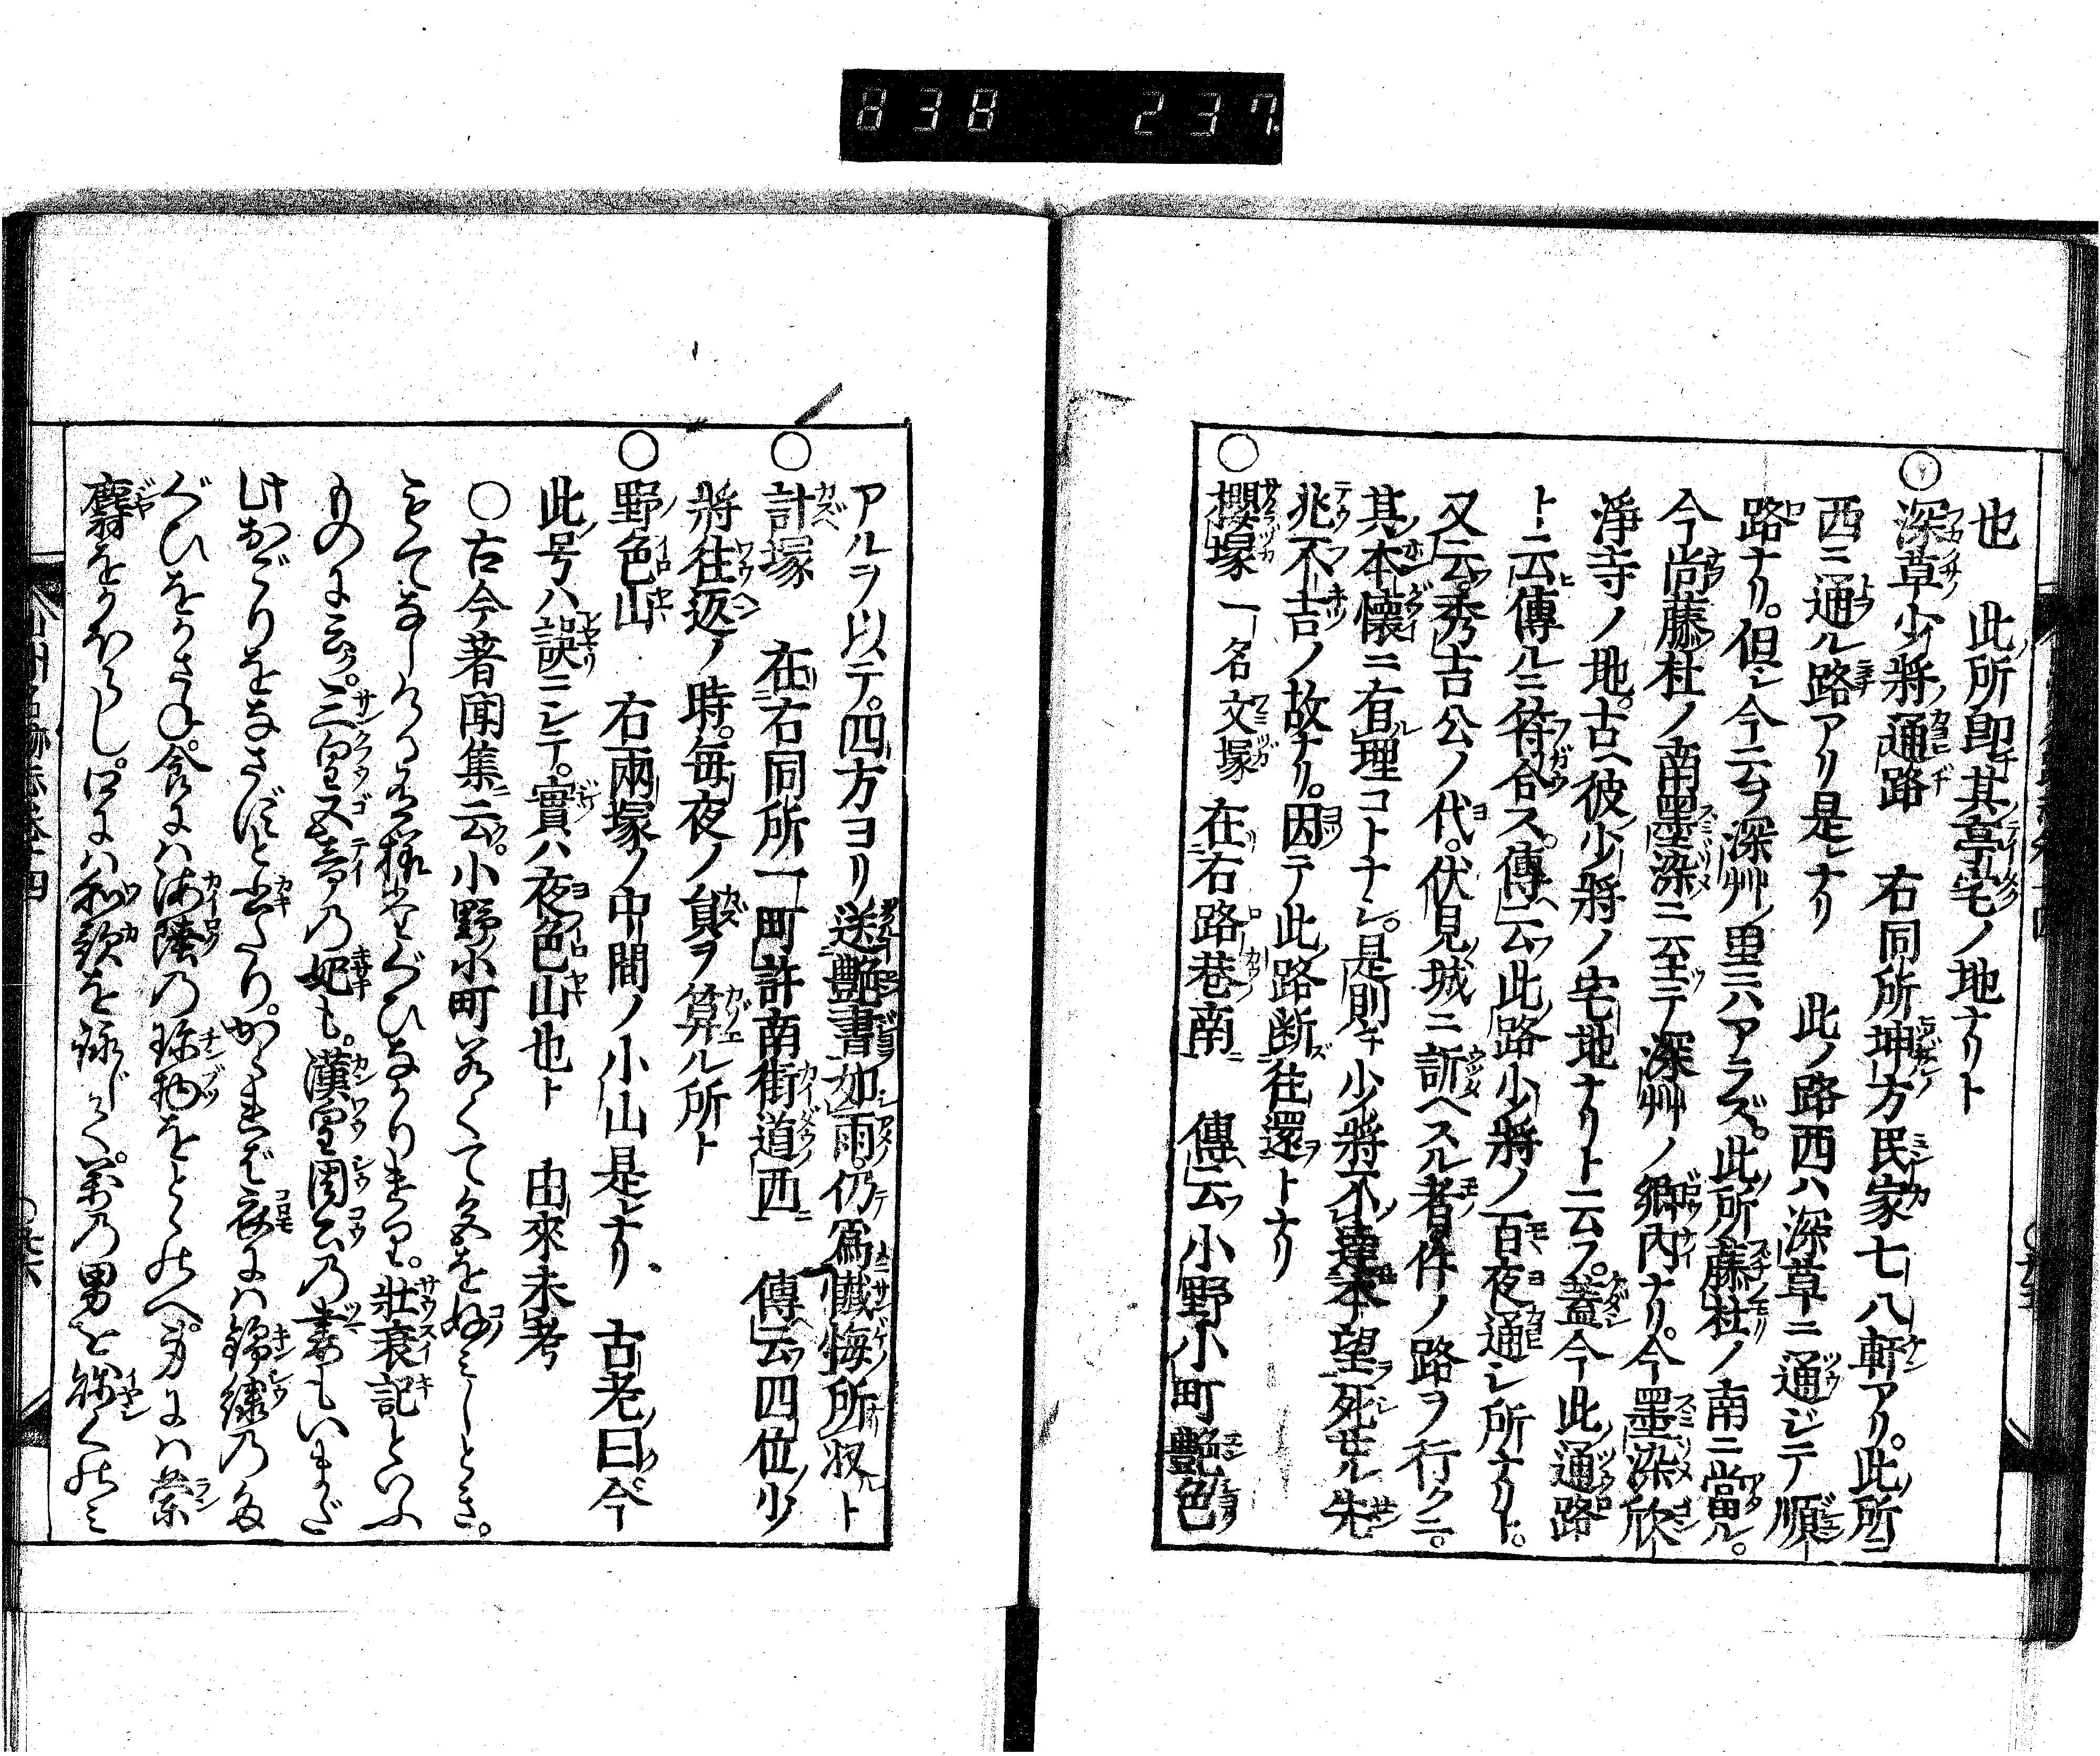 838 237
也 此所即チ其亭宅ノ地ナリト
○深草少將通路 右同所坤方民家七八軒アリ。此所ニ
西ニ通ル路アリ是ナリ 此ノ路西ハ深草ニ通ジテ順
路ナリ。但シ今云フ深艸ノ里ニハアラズ。此所藤杜ノ南ニ當ル。
今尚藤杜ノ南墨染ニ至テ深艸ノ郷内ナリ。今墨染欣
淨寺ノ地。古ヘ彼少將ノ宅地ナリト云フ。蓋今此通路
ト云傳ルニ符合ス。傳云此路少將ノ百夜通シ所ナリト。
又云秀吉公ノ代。伏見城ニ訴ヘスル者件ノ路ヲ行クニ。
其本懷ニ有理コトナシ。是則チ少將不達本望死せル先
兆不吉ノ故ナリ。因テ此路断往還トナリ
○櫻塚 一名文塚 在右路巷南 傳云小野小町艶色
アルヲ以テ。四方ヨリ送艶書如雨。仍爲懺悔所収ト
○計塚 在右同所一町許南街道西 傳云四位少
將往返ノ時。毎夜ノ員ヲ算ル所ト
○野色山 右兩塚ノ中間ノ小山是ナリ 古老曰今
此号ハ誤ニシテ。實ハ夜色山也ト 由來未考
○古今著聞集ニ云。小野小町若くて色を好みしとき。
もてなしけるありさまたぐひなかりけり。壯衰記といふ
ものには。三皇五帝の妃も。漢皇周公の妻もいまだ
此おごりをなさずと書たり。かゝれば衣には錦繡のた
ぐひをかさね。食には海陸の珍物をとゝのへ。身には蘭
麝をかほらし。口には和歌を詠じて。萬の男を賤くのみ